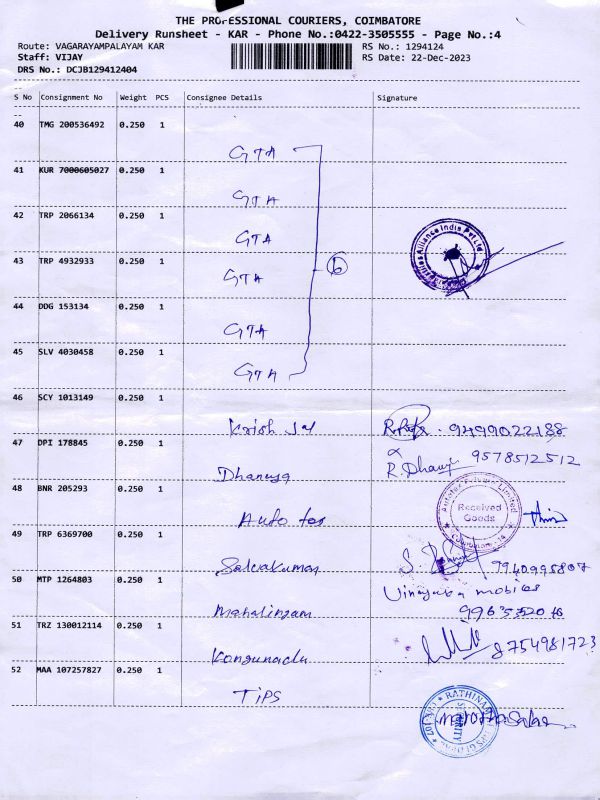 THE PROFESSIONAL COURIERS, COIMBATORE
Delivery Runsheet - KAR - Phone No.:0422-3505555 - Page No.:4
Route: VAGARAYAMPALAYAM KAR RS No.: 1294124
Staff: VIJAY RS Date: 22-Dec-2023
DRS No.: DCJB129412404
S No Consignment No Weight PCS Consignee Details Signature
40 TMG 200536492 0.250 1
GTA
41 KUR 7000605027 0.250 1
GTA
42 TRP 2066134 0.250 1
GTA
43 TRP 4932933 0.250 1
GTA 6
44 DDG 153134 0.250 1
GTA
45 SLV 4030458 0.250 1
GTA
Alliance India Pvt Ltd
46 SCY 1013149 0.250 1
Krish Jal 9499022188
47 DPI 178845 0.250 1
Dhanusa R. Dhanu 9578512512
48 BNR 205293 0.250 1
Auto tex
Autotex Private Limited
Received
Goods
Coimbatore
49 TRP 6369700 0.250 1
Selvakumar
50 MTP 1264803 0.250 1
Vinayaka mobiles
Mahalingam
51 TRZ 130012114 0.250 1
Kongunadu 8754981723
52 MAA 107257827 0.250 1
TIPS
RATHINAM
SECURITY